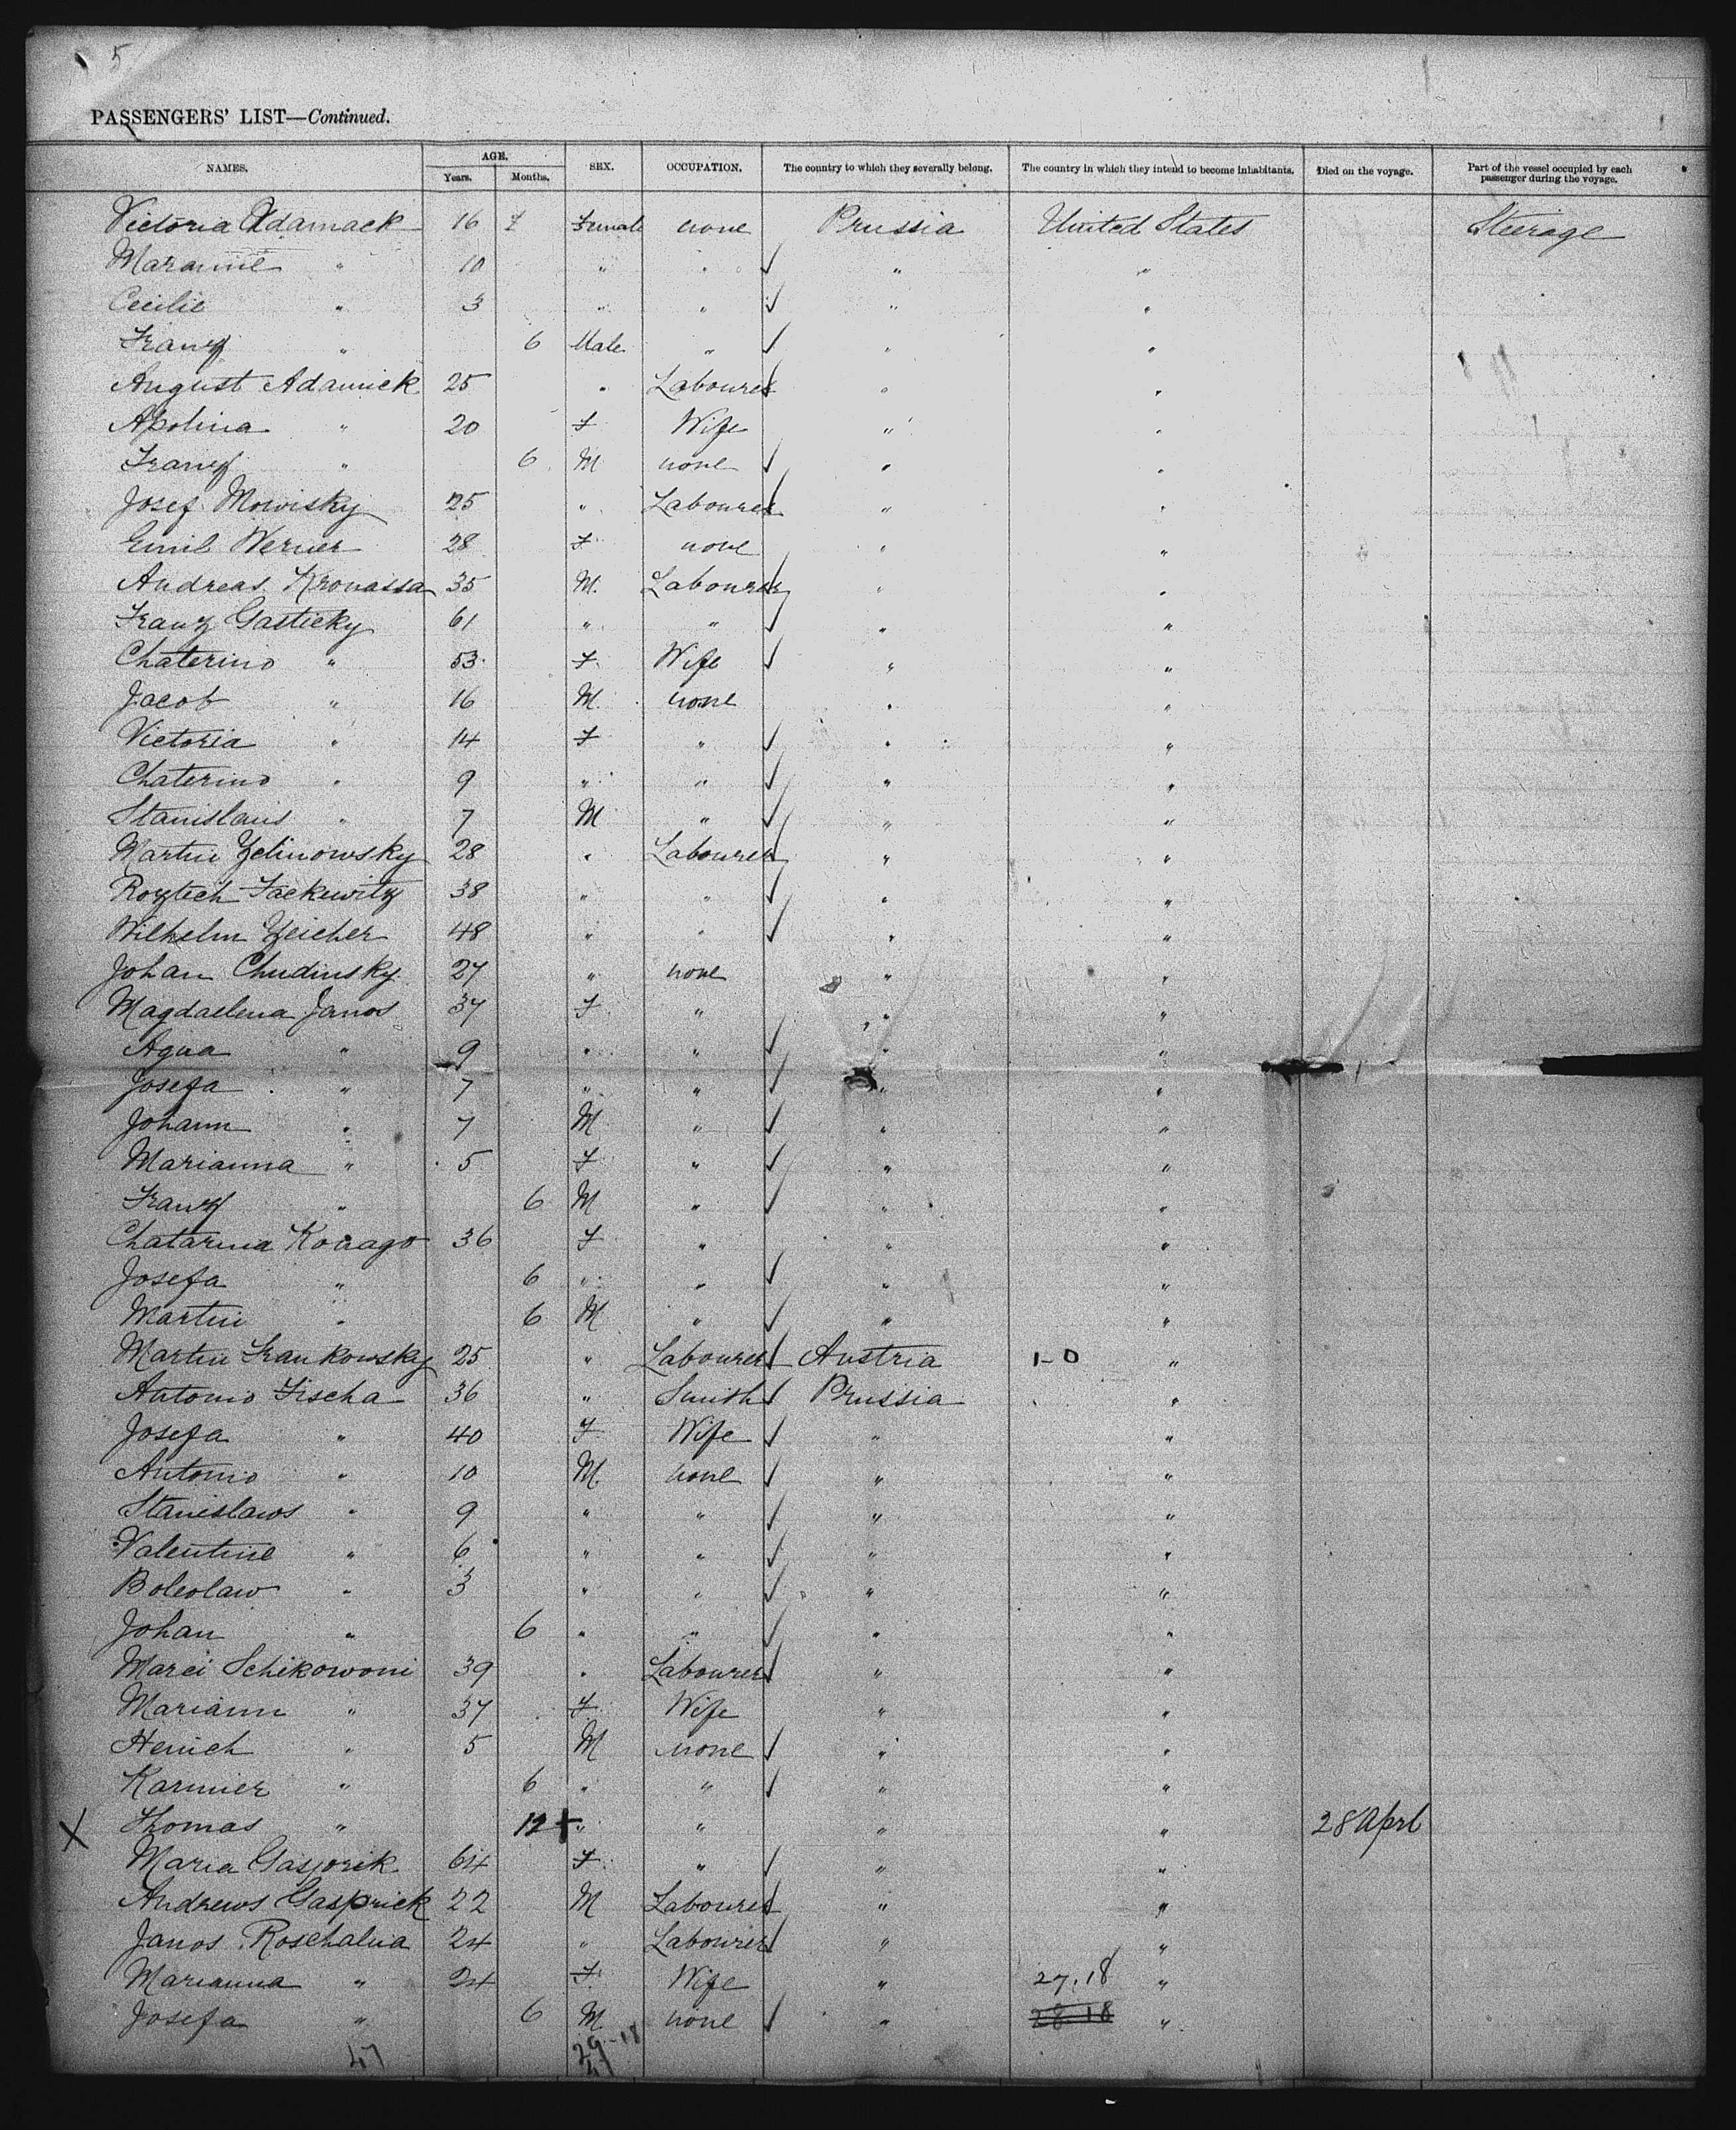 5
PASSENGERS' LIST—Continued.
NAMES. AGE. Years. Months. SEX. OCCUPATION. The country to which they severally belong. The country in which they intend to become inhabitants. Died on the voyage. Part of the vessel occupied by each passenger during the voyage.
Victoria Adamack 16 Female none Prussia United States Steerage
Marannie " 10 " " ✓ " "
Cecilie " 3 " " ✓ " "
Franz " 6 Male " ✓ " "
August Adamick 25 " Labourer " "
Apolina " 20 F Wife " "
Franz " 6 M none ✓ " "
Josef Mowisky 25 " Labourer " "
Emil Werner 28 F none " "
Andreas Kronassa 35 M. Labourer " "
Franz Gasticky 61 " " ✓ " "
Chaterino " 53 F Wife ✓ " "
Jacob " 16 M none " "
Victoria " 14 F " ✓ " "
Chaterino " 9 " " ✓ " "
Stanislaus " 7 M " ✓ " "
Martin Zelinowsky 28 " Labourer " "
Roztech Fackewitz 38 " " ✓ " "
Wilhelm Zeicher 48 " " ✓ " "
Johan Chudinsky 27 " none " "
Magdaelena Janos 37 F " " "
Agna " 9 " " ✓ " "
Josefa " 7 " " ✓ " "
Johann " 7 M " ✓ " "
Marianna " 5 F " ✓ " "
Franz " 6 M " ✓ " "
Chatarina Konago 36 F " " "
Josefa " 6 " " ✓ " "
Martin " 6 M " ✓ " "
Martin Frankowsky 25 " Labourer ✓ Austria 1-0 "
Antonio Fischa 36 " Smith ✓ Prussia "
Josefa " 40 F Wife ✓ " "
Antonio " 10 M. none ✓ " "
Stanislaws " 9 " " ✓ " "
Valentine " 6 " " ✓ " "
Boleolaw " 3 " " ✓ " "
Johan " 6 " " ✓ " "
Marci Schikowoni 39 " Labourer ✓ " "
Mariann " 37 F Wife " "
Henich " 5 M none ✓ " "
Karmier " 6 " " ✓ " "
X Thomas " 12 + " " " " 28 Aprl
Maria Gasporik 64 F " ✓ " "
Andrews Gasprick 22 M Labourer " "
Janos Roschalna 24 " Labourer " "
Marianna " 24 F Wife " 27.18 "
Josefa " 6 M none ✓ " 28 18 "
47 29-18
47